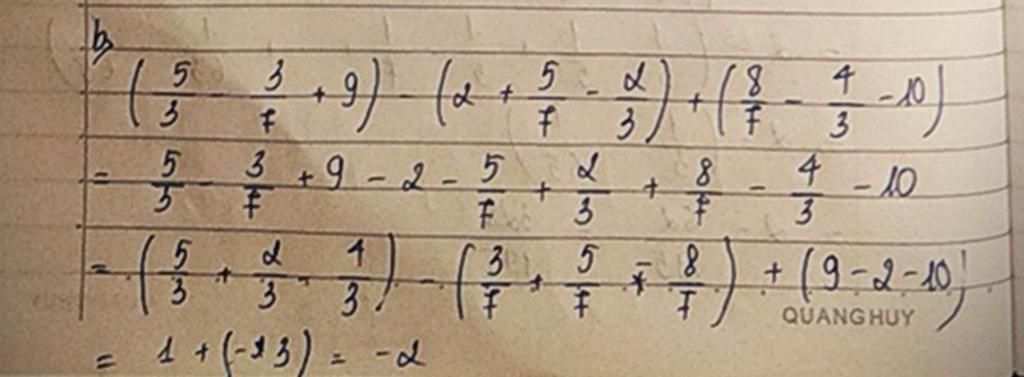 b,
(5/3 - 3/7 + 9) - (2 + 5/7 - 2/3) + (8/7 - 4/3 - 10)
= 5/3 - 3/7 + 9 - 2 - 5/7 + 2/3 + 8/7 - 4/3 - 10
= (5/3 + 2/3 - 4/3) - (3/7 + 5/7 - 8/7) + (9 - 2 - 10)
QUANG HUY
= 1 + (-3) = -2